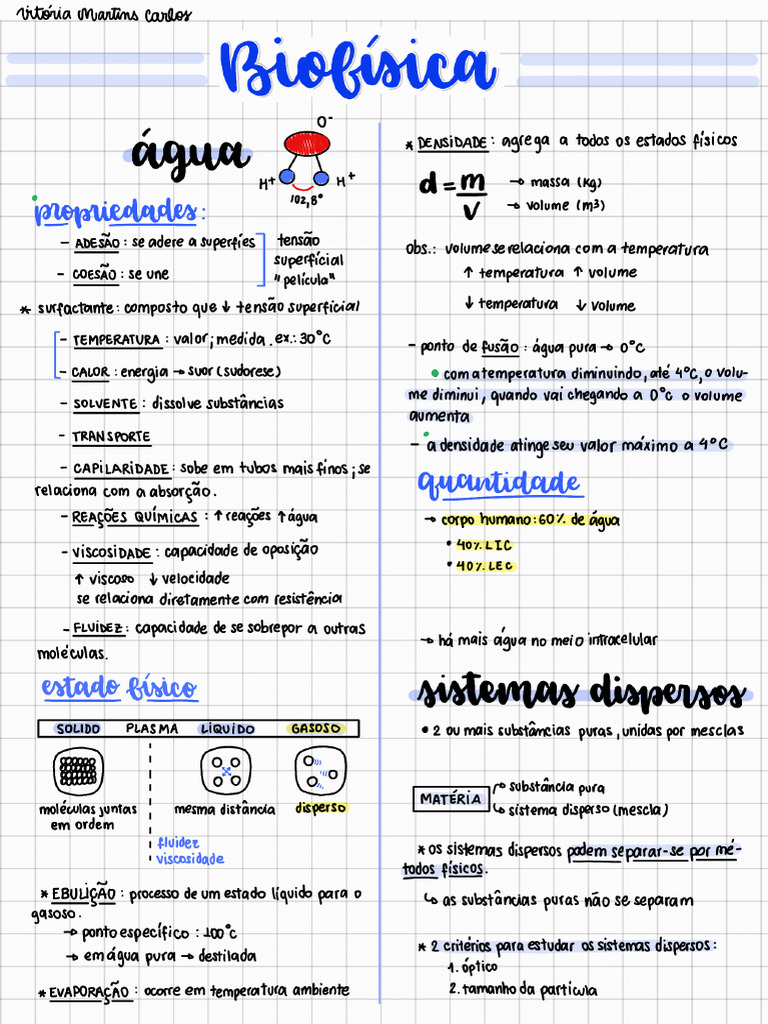 Vitória Martins Carlos
Biofísica
água
O-
H+
H+
102,8°
propriedades:
- ADESÃO: se adere a superfíes
- COESÃO: se une
tensão
superfícial
"película"
* surfactante: composto que ↓ tensão superficial
- TEMPERATURA: valor; medida. ex.: 30°C
- CALOR: energia → suor (sudorese)
- SOLVENTE: dissolve substâncias
- TRANSPORTE
- CAPILARIDADE: sobe em tubos mais finos; se
relaciona com a absorção.
- REAÇÕES QUÍMICAS: ↑ reações ↑ água
- VISCOSIDADE: capacidade de oposição
↑ viscoso ↓ velocidade
se relaciona diretamente com resistência
- FLUIDEZ: capacidade de se sobrepor a outras
moléculas.
estado físico
SOLIDO PLASMA LÍQUIDO GASOSO
moléculas juntas
em ordem
mesma distância
disperso
fluidez
viscosidade
* EBULIÇÃO: processo de um estado líquido para o
gasoso.
→ ponto específico: 100°C
→ em água pura → destilada
* EVAPORAÇÃO: ocorre em temperatura ambiente
* DENSIDADE: agrega a todos os estados físicos
d = m
v
→ massa (kg)
→ volume (m³)
obs.: volume se relaciona com a temperatura
↑ temperatura ↑ volume
↓ temperatura ↓ volume
- ponto de fusão: água pura → 0°C
• com a temperatura diminuindo, até 4°C, o volu-
me diminui, quando vai chegando a 0°c o volume
aumenta
- a densidade atinge seu valor máximo a 4°C
quantidade
→ corpo humano: 60% de água
• 40% LIC
• 40% LEC
→ há mais água no meio intracelular
sistemas dispersos
• 2 ou mais substâncias puras, unidas por mesclas
MATÉRIA
substância pura
sistema disperso (mescla)
* os sistemas dispersos podem separar-se por mé-
todos físicos.
↳ as substâncias puras não se separam
* 2 critérios para estudar os sistemas dispersos:
1. óptico
2. tamanho da partícula